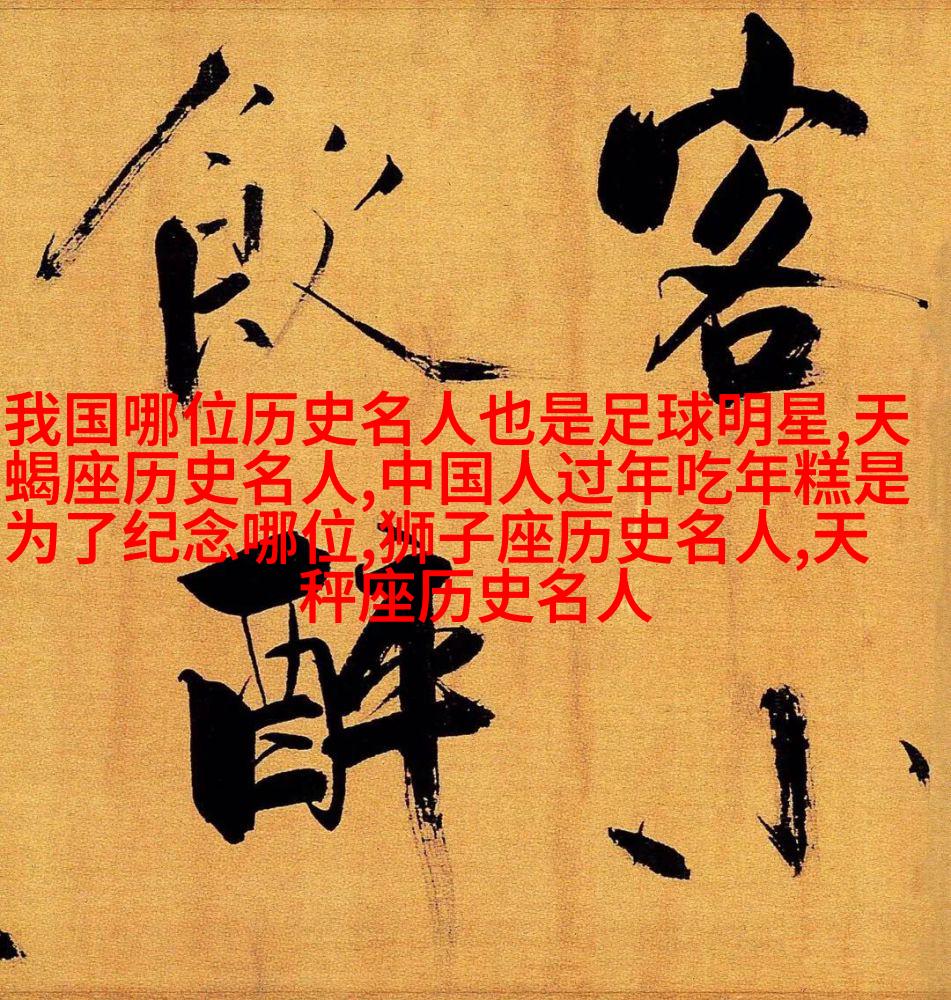 客小
飲醉
我国哪位历史名人也是足球明星,天
蝎座历史名人,中国人过年吃年糕是
为了纪念哪位,狮子座历史名人,天
秤座历史名人